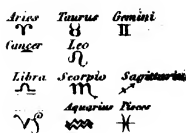 Aries Taurus Gemini
♈ ♉ ♊
Cancer Leo
♌
Libra Scorpio Sagittarius
♎ ♏ ♐
Aquarius Pisces
♑ ♒ ♓